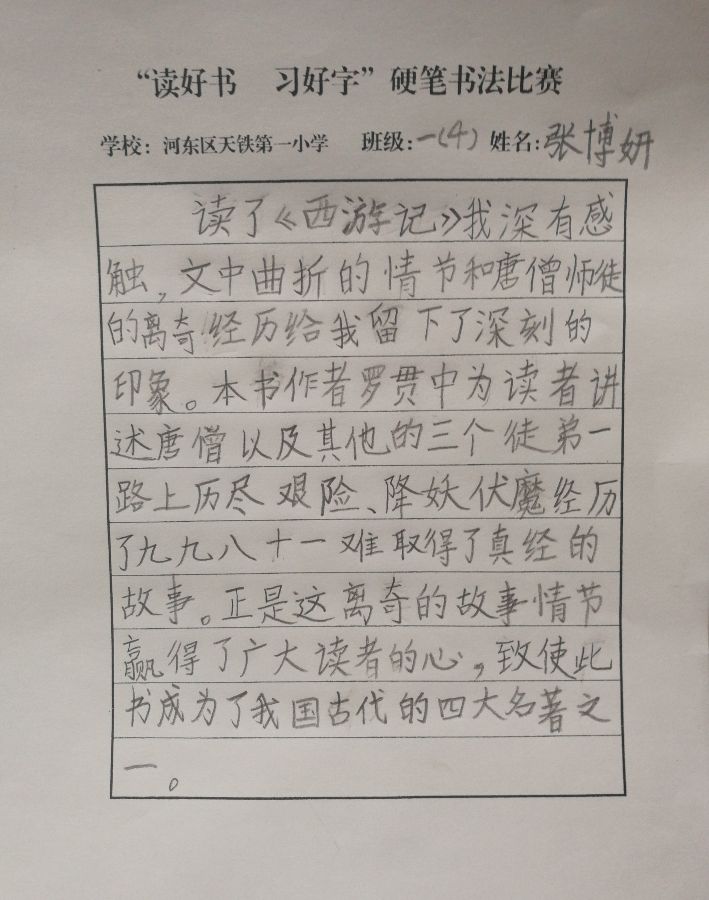 “读好书 习好字”硬笔书法比赛
学校：河东区天铁第一小学 班级：一(4) 姓名：张博妍
读了《西游记》我深有感
触，文中曲折的情节和唐僧师徒
的离奇经历给我留下了深刻的
印象。本书作者罗贯中为读者讲
述唐僧以及其他的三个徒弟一
路上历尽艰险、降妖伏魔经历
了九九八十一难取得了真经的
故事。正是这离奇的故事情节
赢得了广大读者的心，致使此
书成为了我国古代的四大名著之
一。